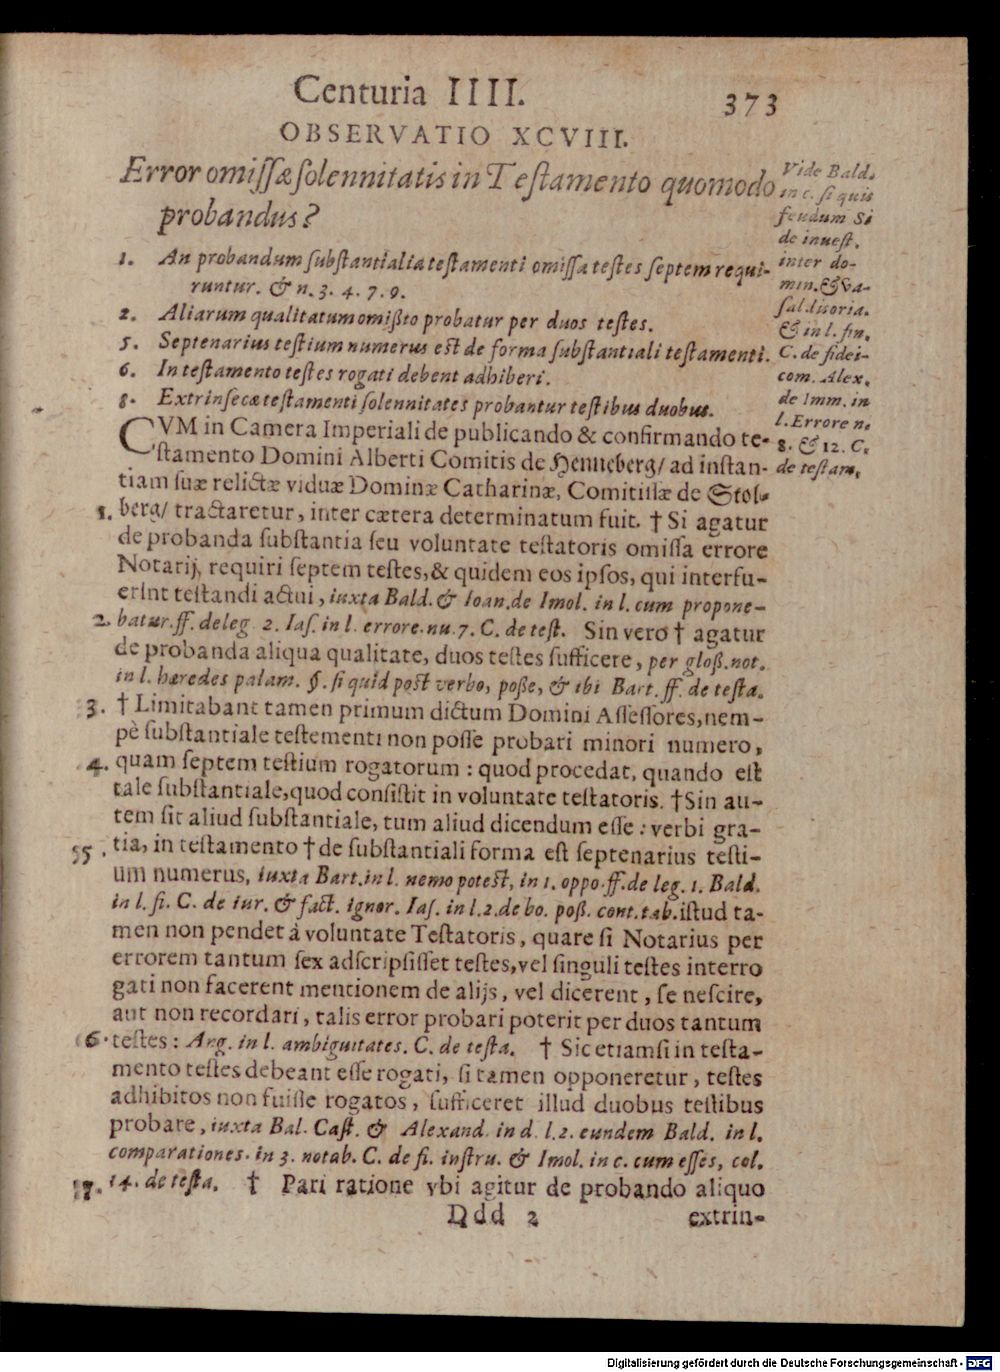 Centuria IIII. 373
OBSERVATIO XCVIII.
Error omiſſæ ſolennitatis in Teſtamento quomodo
probandus?
1. An probandum ſubſtantialia teſtamenti omiſſa teſtes ſeptem requi-
runtur. & n. 3. 4. 7. 9.
2. Aliarum qualitatum omißio probatur per duos teſtes.
5. Septenarius teſtium numerus eſt de forma ſubſtantiali teſtamenti.
6. In teſtamento teſtes rogati debent adhiberi.
8. Extrinſecæ teſtamenti ſolennitates probantur teſtibus duobus.
Vide Bald.
in c. ſi quis
feudum Si
de inueſt.
inter do-
min. & va-
ſal. lit. oria.
& in l. fin.
C. de fidei-
com. Alex.
de Imm. in
l. Errore n.
8. & 12. C.
de teſtam.
CVM in Camera Imperiali de publicando & confirmando te-
ſtamento Domini Alberti Comitis de Henneberg/ ad inſtan-
tiam ſuæ relictæ viduæ Dominæ Catharinæ, Comitiſſæ de Stol-
1. berg/ tractaretur, inter cætera determinatum fuit. † Si agatur
de probanda ſubſtantia ſeu voluntate teſtatoris omiſſa errore
Notarij, requiri ſeptem teſtes, & quidem eos ipſos, qui interfu-
erint teſtandi actui, iuxta Bald. & Ioan. de Imol. in l. cum propone-
2. batur. ff. de leg. 2. Iaſ. in l. errore. nu. 7. C. de teſt. Sin vero † agatur
de probanda aliqua qualitate, duos teſtes ſufficere, per gloß. not.
in l. hæredes palam. §. ſi quid poſt verbo, poße, & ibi Bart. ff. de teſta.
3. † Limitabant tamen primum dictum Domini Aſſeſſores, nem-
pè ſubſtantiale teſtementi non poſſe probari minori numero,
4. quam ſeptem teſtium rogatorum : quod procedat, quando eſt
tale ſubſtantiale, quod conſiſtit in voluntate teſtatoris. † Sin au-
tem ſit aliud ſubſtantiale, tum aliud dicendum eſſe : verbi gra-
55. tia, in teſtamento † de ſubſtantiali forma eſt ſeptenarius teſti-
um numerus, iuxta Bart. in l. nemo poteſt, in 1. oppo. ff. de leg. 1. Bald.
in l. ſi. C. de iur. & fact. ignor. Iaſ. in l. 2. de bo. poß. cont. tab. iſtud ta-
men non pendet à voluntate Teſtatoris, quare ſi Notarius per
errorem tantum ſex adſcripſiſſet teſtes, vel ſinguli teſtes interro
gati non facerent mentionem de alijs, vel dicerent, ſe neſcire,
aut non recordari, talis error probari poterit per duos tantum
6. teſtes : Arg. in l. ambiguitates. C. de teſta. † Sic etiamſi in teſta-
mento teſtes debeant eſſe rogati, ſi tamen opponeretur, teſtes
adhibitos non fuiſſe rogatos, ſufficeret illud duobus teſtibus
probare, iuxta Bal. Caſt. & Alexand. in d. l. 2. eundem Bald. in l.
comparationes. in 3. notab. C. de fi. inſtru. & Imol. in c. cum eſſes, col.
17. 14. de teſta. † Pari ratione vbi agitur de probando aliquo
Ddd 2 extrin-
Digitalisierung gefördert durch die Deutsche Forschungsgemeinschaft - DFG